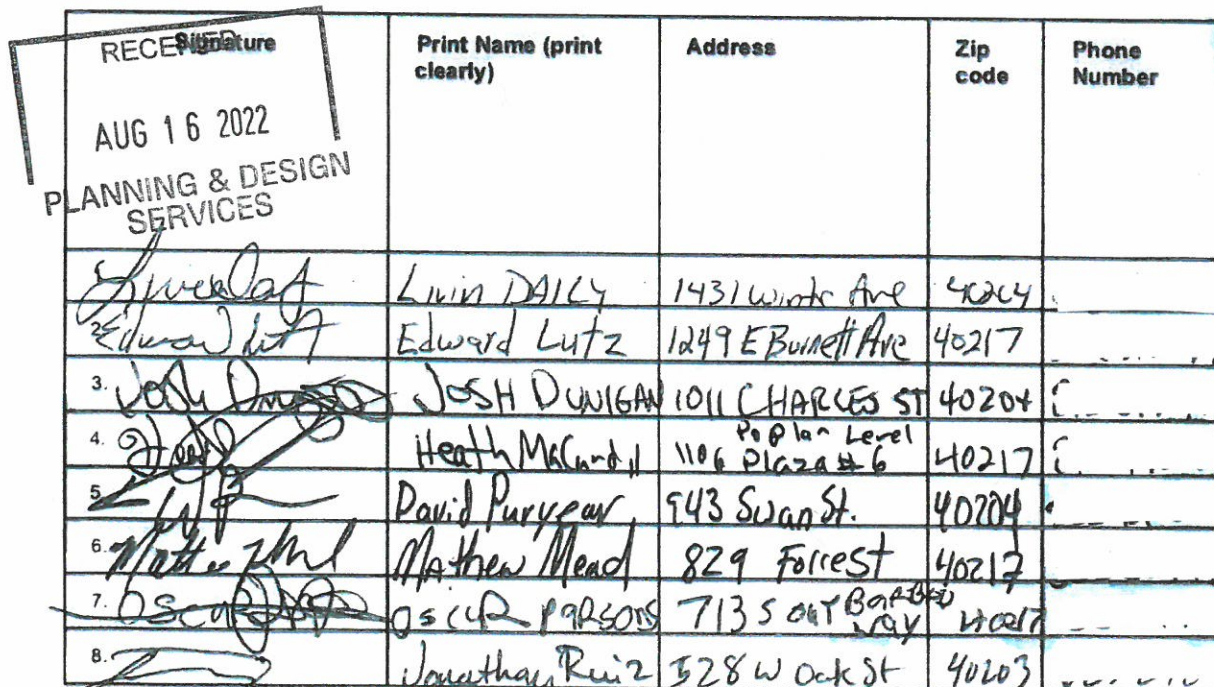 RECEIVED
AUG 16 2022
PLANNING & DESIGN
SERVICES
Signature Print Name (print clearly) Address Zip code Phone Number
1. Livin DAILY 1431 Ave 40204
2. Edward Lutz Edward Lutz 1249 E Burnett Ave 40217
3. Josh JOSH DUNIGAN 1011 CHARLES ST 40204
4. Heath Heath 1106 Poplar Level Plaza #6 40217
5. David Puryear 943 Swan St. 40204
6. Mathew Mead 829 Forrest 40217
7. Oscar OSCUR PARSONS 713 40217
8. Jonathan Ruiz 528 W Oak St 40203